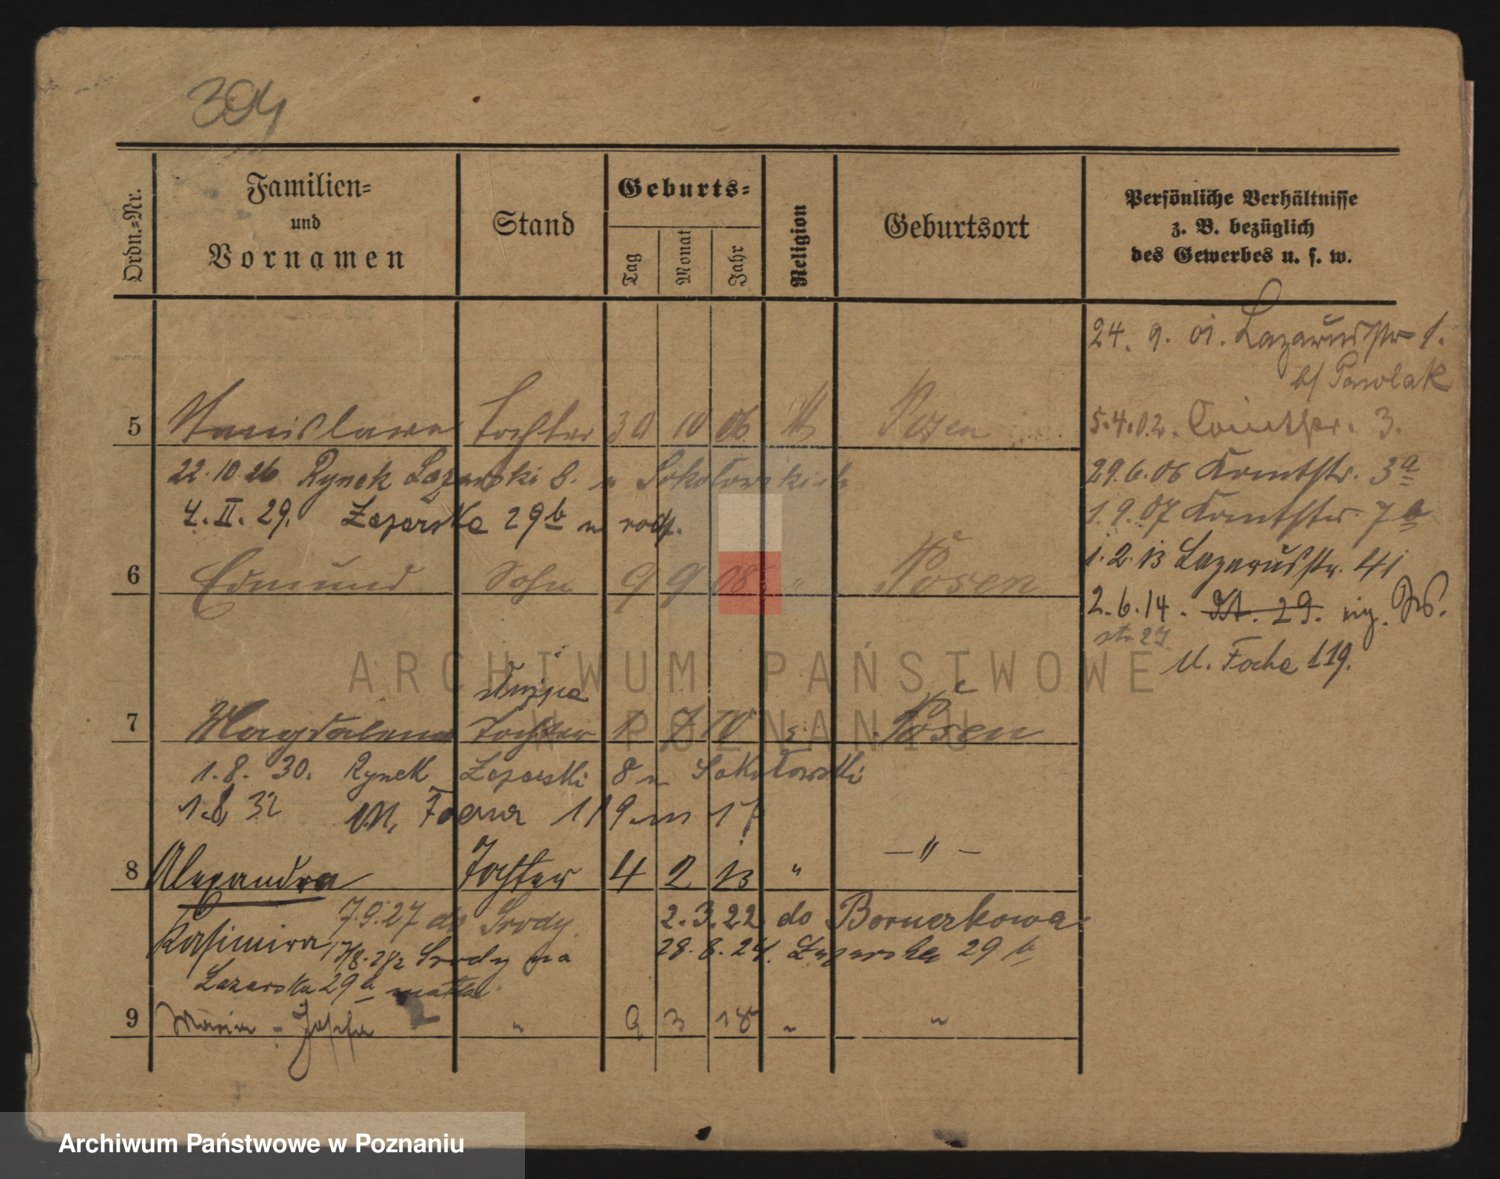 304
Ordn.=Nr.
Familien=
und
Vornamen
Stand
Geburts=
Tag
Monat
Jahr
Religion
Geburtsort
Persönliche Verhältnisse
z. B. bezüglich
des Gewerbes u. s. w.
24. 9. 01. Lazarusstr 1.
b/ Pawolak
5 Stanislawa Tochter 30 10 06 Posen
5.4.02. 3.
22.10.26 Rynek Lazarski 8. u Sokołowskich
29.6.06 3a
4. II. 29. Łazarska 29b u rodz.
1.9.07 7a
6 Edmund Sohn 9 9 08 " Posen
1.2.13 Lazarusstr. 41
2.6.14. St. 29.
str 27
M. Focha 119.
Służąca
7 Magdalena Tochter 1 7 10 Posen
1.8.30. Rynek Łazarski 8 u Sokołowski
1.8.32 M. Focha 119 m 17
8 Alexandra Tochter 4 2 13 " — " —
7.9.27 do Środy. 2.3.22 do
Kasimira, 17/8.28 z Środy na 28.8.24. Łazarska 29b
Lazarska 29b matka
9 Maria - Josefa " 9 3 18 " "
ARCHIWUM PAŃSTWOWE
W POZNANIU
Archiwum Państwowe w Poznaniu